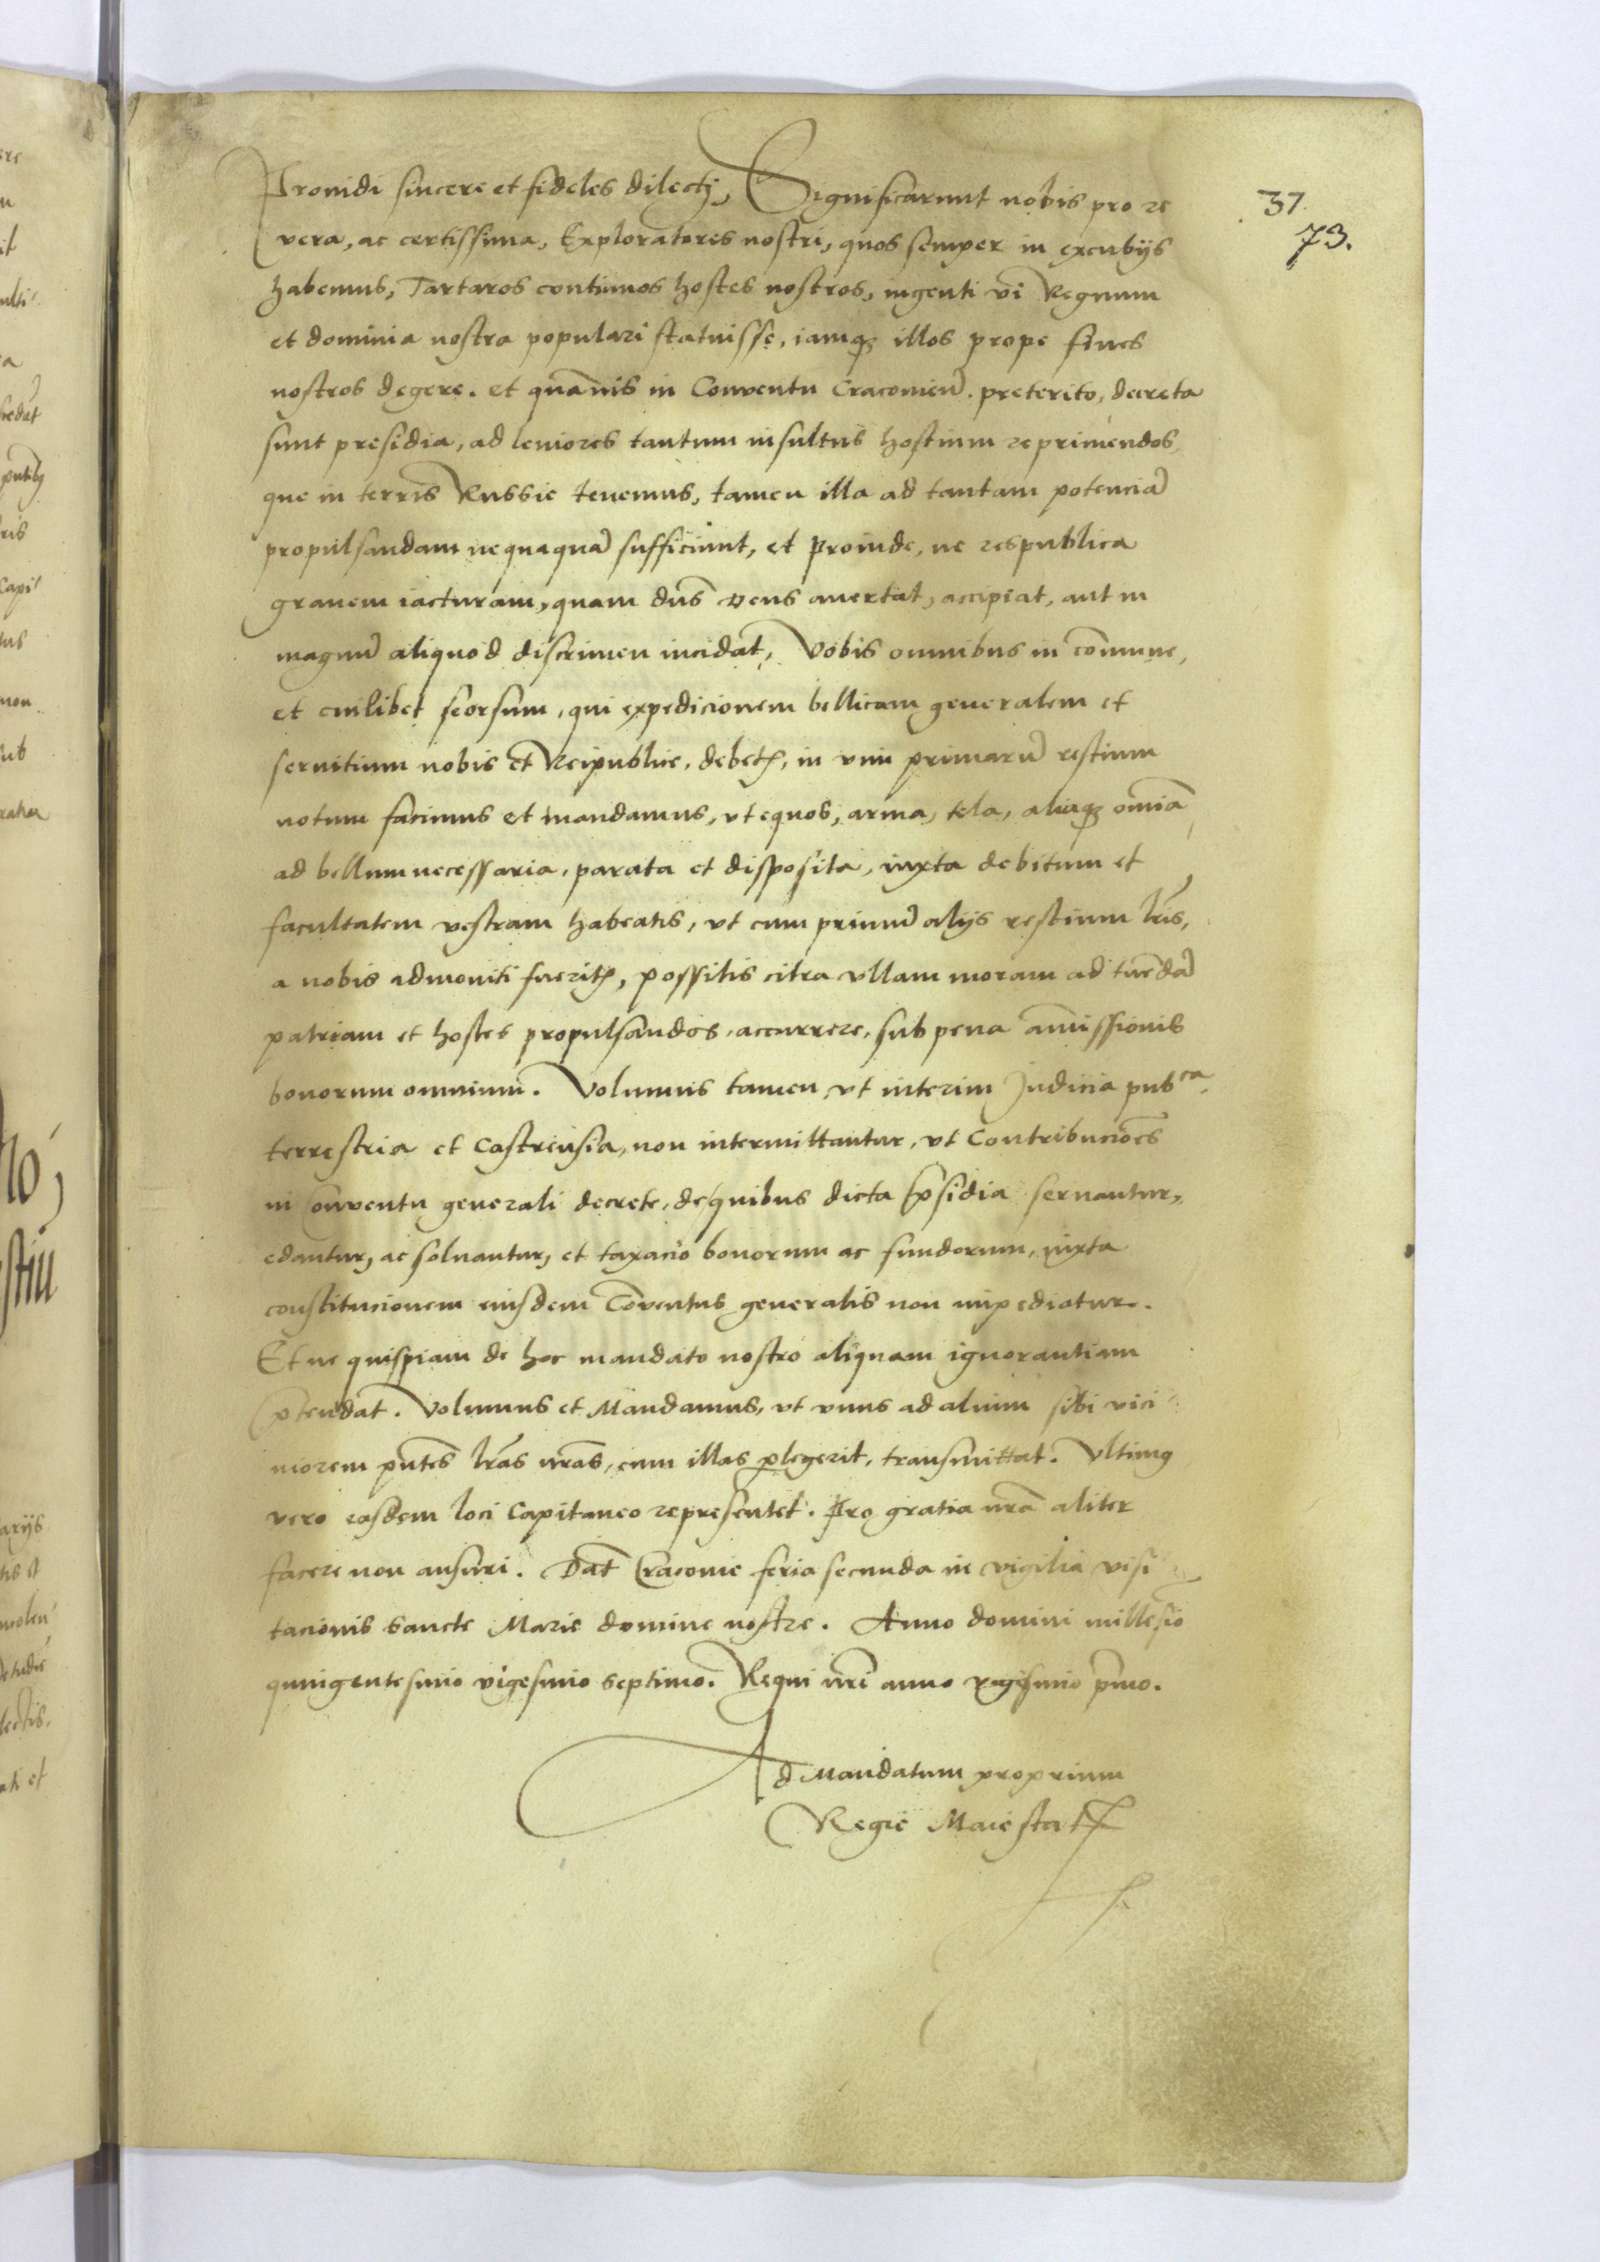 Prouidi sincere et fideles dilecti, Significarunt nobis pro re
vera, ac certissima, Exploratores nostri, quos semper in excubijs
habemus, Tartaros continuos hostes nostros, ingenti vi Regnum
et dominia nostra populari statuisse, iamq₃ illos prope fines
nostros degere. et quāuis in Conuentu Cracouieñ. preterito, decreta
sunt presidia, ad leuiores tantum insultus hostium reprimendos,
que in terris Russie tenemus, tamen illa ad tantam potenciā
propulsandam nequaquā sufficiunt, et proinde, ne respublica
grauem iacturam, quam dūs Deus auertat, accipiat, aut in
magnū aliquod discrimen incidat, Vobis omnibus in cōmune,
et cuilibet seorsum, qui expedicionem bellicam generalem et
seruitium nobis et Reipublice, debetꝭ, in vim primarū restium
notum facimus et mandamus, vt equos, arma, tela, aliaq₃ omīa
ad bellum necessaria, parata et disposita, iuxta debitum et
facultatem vestram habeatis, vt cum primū alijs restium lr̄is,
a nobis admoniti fueritꝭ, possitis citra vllam moram ad tuēdā
patriam et hostes propulsandos, accurrere, sub pena amissionis
bonorum omnium. Volumus tamen, vt interim Judicia pubca
terrestria et Castrensia, non intermittantur, vt Contribuciōes
in Conuentu generali decrete, de quibus dicta p̄sidia seruantur,
edantur, ac soluantur, et taxacio bonorum ac fundorum, iuxta
constitucionem eiusdem Cōuentus generalis non impediatur.
Et ne quispiam de hoc mandato nostro aliquam ignorantiam
p̄tendat. Volumus et Mandamus, vt vnus ad alium sibi vici
niorem pn̄tes lr̄as nr̄as, cum illas ꝑlegerit, transmittat. Vltimꝰ
vero easdem loci Capitaneo representet. Pro gratia nr̄a aliter
facere non ausuri. Dat̄ Cracouie feria secunda in vigilia visi
tacionis Sancte Marie domine nostre. Anno domini millesīo
quingentesimo vigesimo septimo. Regni nr̄i anno vigesimo p̄mo.
Ad Mandatum proprium
Regie Maiestatꝭ
37.
73.